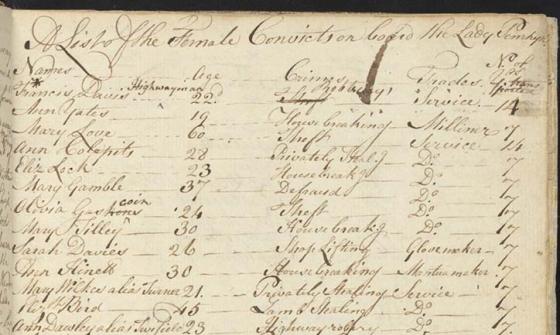 A List of the Female Convicts on board the Lady Penrhyn
Names Age Crimes Trades No. of Yrs trans ported
*Francis Davis Highwaywoman 22 robbery Service 14
Ann Yates 19 House breaking Milliner 7
Mary Love 60 Theft Service 14
Ann Colepits 28 Privately Stealg Do. 7
Eliz Lock 23 Housebreakg Do. 7
Mary Gamble 37 Defraud Do. 7
Olivia Gascoin 24 Theft Do. 7
Mary Tilley 30 House breakg Do. 7
Sarah Davies 26 Shop Lifting Glovemaker 7
30 House breaking Mantua maker 7
Mary Wickes alia Turner 21 Privately Stealing Service 7
Bird 45 Lamb Stealing Do. 7
Ann Dawley alia 23 Highway robbery Do. 7